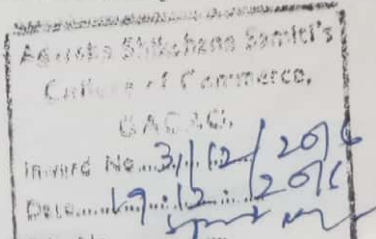 Shikshana Samiti's
College of Commerce,
GADAG.
Inward No...31/12/2016
Date.......19.12.2016